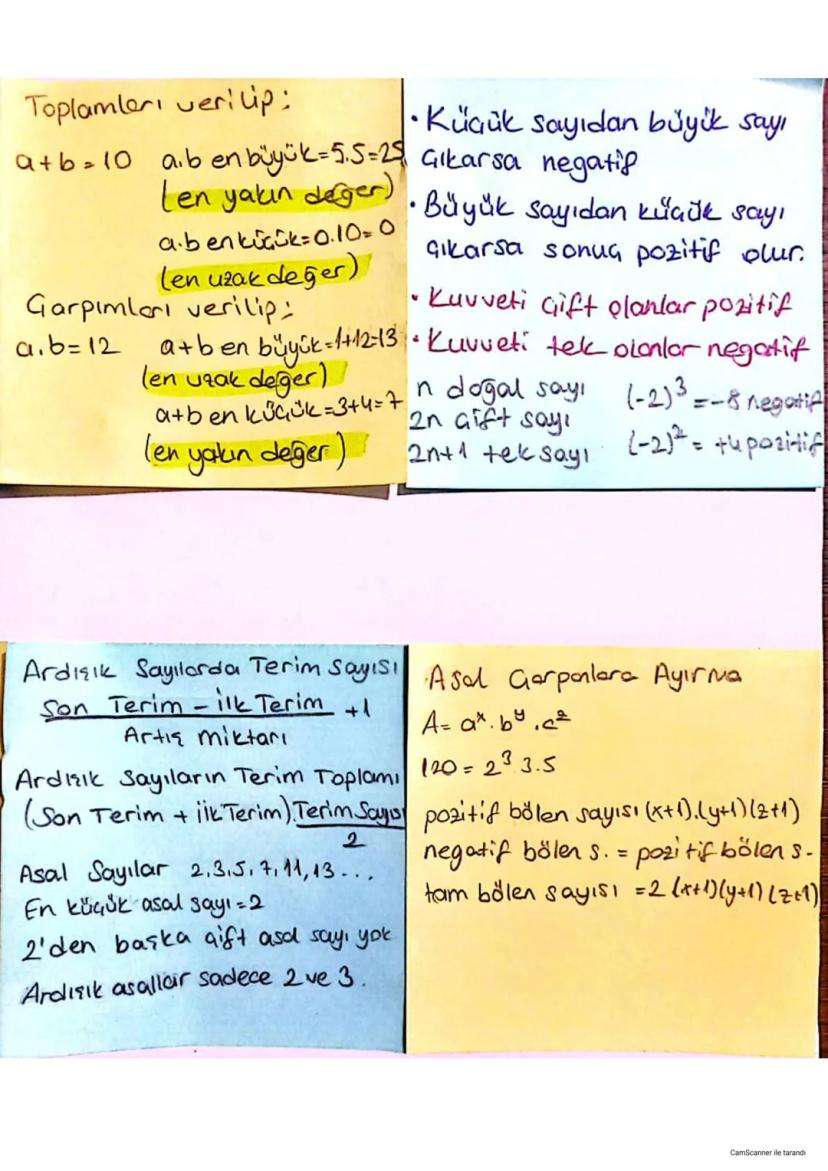 Toplamları verilip:
a+b=10 a.b en büyük=5.5=25
(en yakın değer)
a.b en küçük=0.10=0
(en uzak değer)
Çarpımları verilip:
a.b=12 a+b en büyük=1+12=13
(en uzak değer)
a+b en küçük=3+4=7
(en yakın değer)
• Küçük sayıdan büyük sayı
çıkarsa negatif
• Büyük sayıdan küçük sayı
çıkarsa sonuç pozitif olur.
• Kuvveti çift olanlar pozitif
• Kuvveti tek olanlar negatif
n doğal sayı (-2)³=-8 negatif
2n çift sayı
2n+1 tek sayı (-2)²=+4 pozitif
Ardışık Sayılarda Terim Sayısı
Son Terim - ilk Terim +1
Artış miktarı
Ardışık Sayıların Terim Toplamı
(Son Terim + ilk Terim).Terim Sayısı
2
Asal Sayılar 2,3,5,7,11,13...
En küçük asal sayı=2
2'den başka çift asal sayı yok
Ardışık asallar sadece 2 ve 3.
Asal Çarpanlara Ayırma
A=aˣ.bʸ.cᶻ
120=2³.3.5
pozitif bölen sayısı (x+1).(y+1)(z+1)
negatif bölen s. = pozitif bölen s.
tam bölen sayısı =2(x+1)(y+1)(z+1)
CamScanner ile tarandı